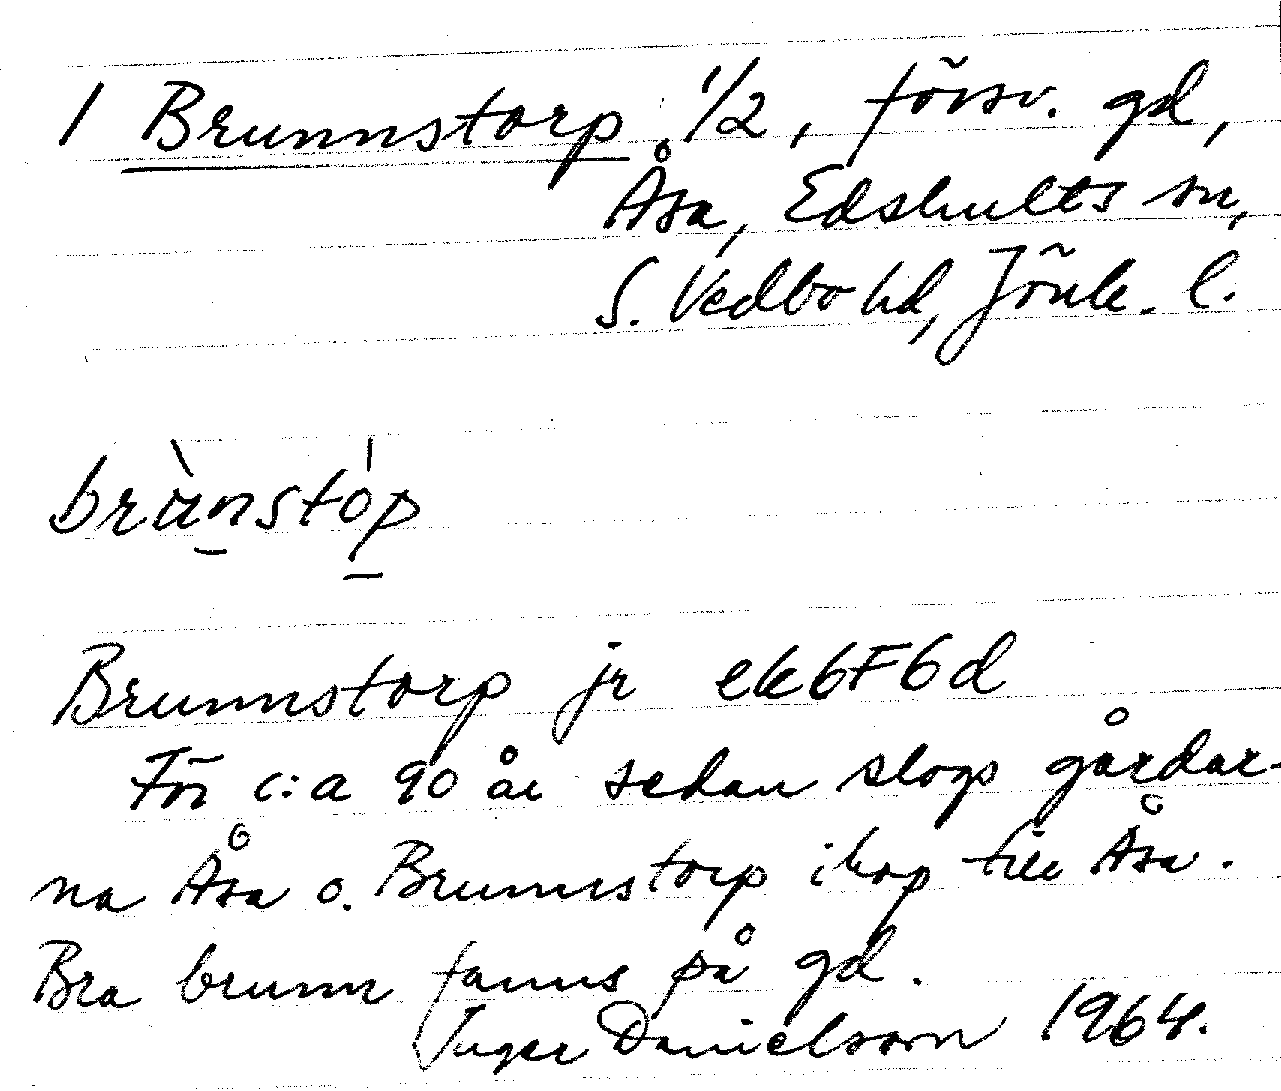 1 Brunnstorp, 1/2, försv. gd,
Åsa, Edshults sn,
S. Vedbo hd, Jönk. l.
brùnstóp
Brunnstorp jr ek 6F6d
För c:a 90 år sedan slogs gårdar-
na Åsa o. Brunnstorp ihop till Åsa.
Bra brunn fanns på gd.
Inger Danielsson 1964.